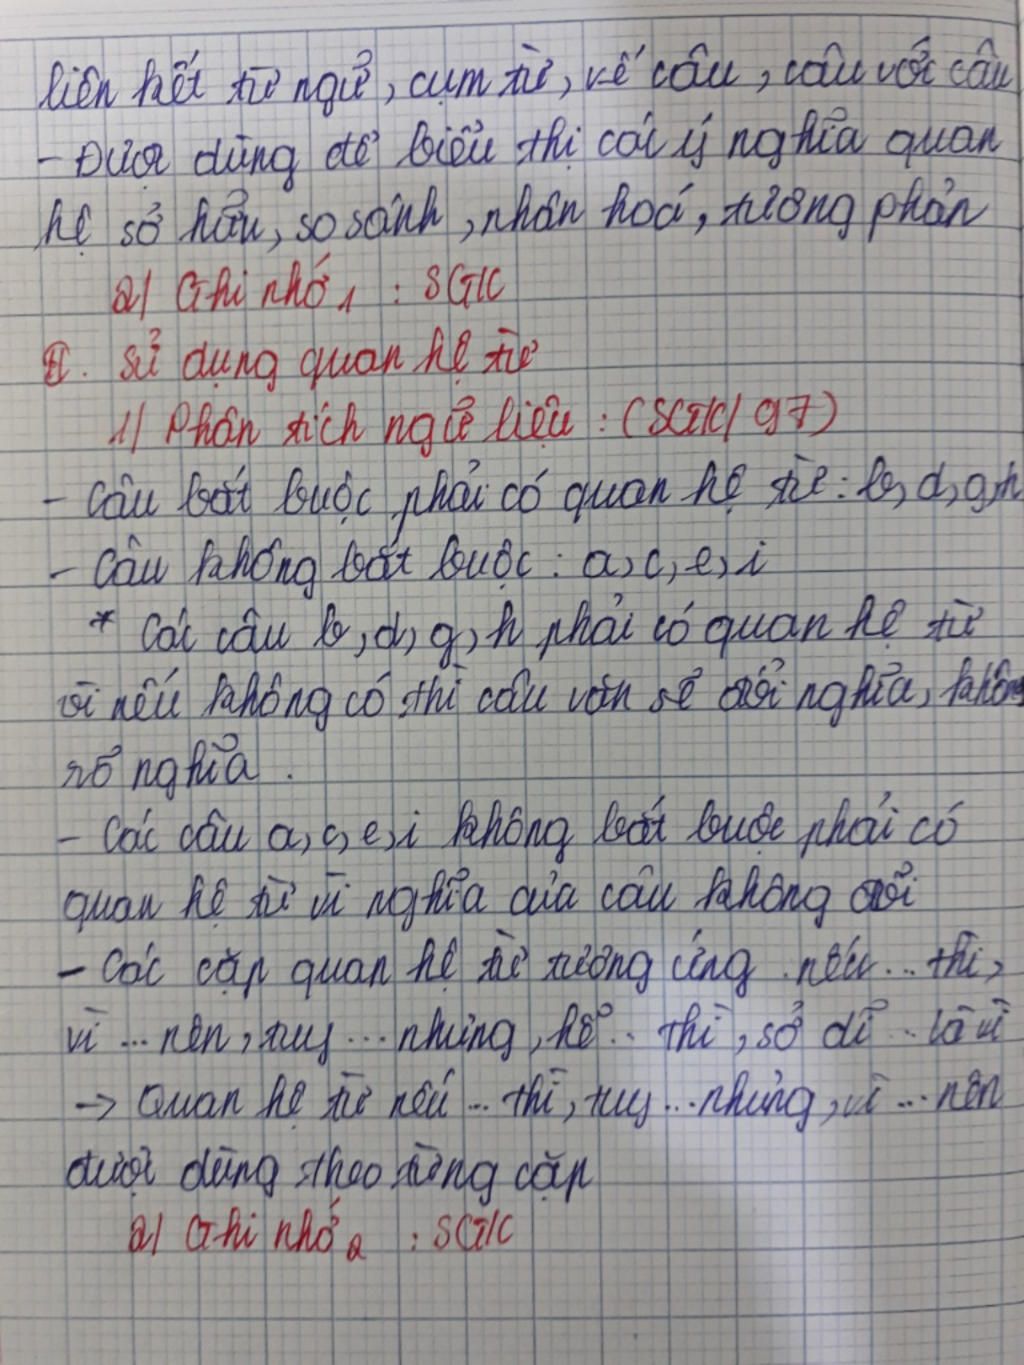 liên kết từ ngữ, cụm từ, vế câu, câu với câu
- Được dùng để biểu thị cái ý nghĩa quan
hệ sở hữu, so sánh, nhân hoá, tương phản
2/ Ghi nhớ 1 : SGK
II. Sử dụng quan hệ từ
1/ Phân tích ngữ liệu : (SGK/97)
- Câu bắt buộc phải có quan hệ từ : b, d, g, h
- Câu không bắt buộc : a, c, e, i
* Các câu b, d, g, h phải có quan hệ từ
vì nếu không có thì câu văn sẽ đổi nghĩa, không
rõ nghĩa .
- Các câu a, c, e, i không bắt buộc phải có
quan hệ từ vì nghĩa của câu không đổi
- Các cặp quan hệ từ tương ứng nếu ... thì,
vì ... nên, tuy ... nhưng, hễ .. thì, sở dĩ .. là vì
-> Quan hệ từ nếu ... thì, tuy ... nhưng, vì ... nên
được dùng theo từng cặp
2/ Ghi nhớ 2 : SGK